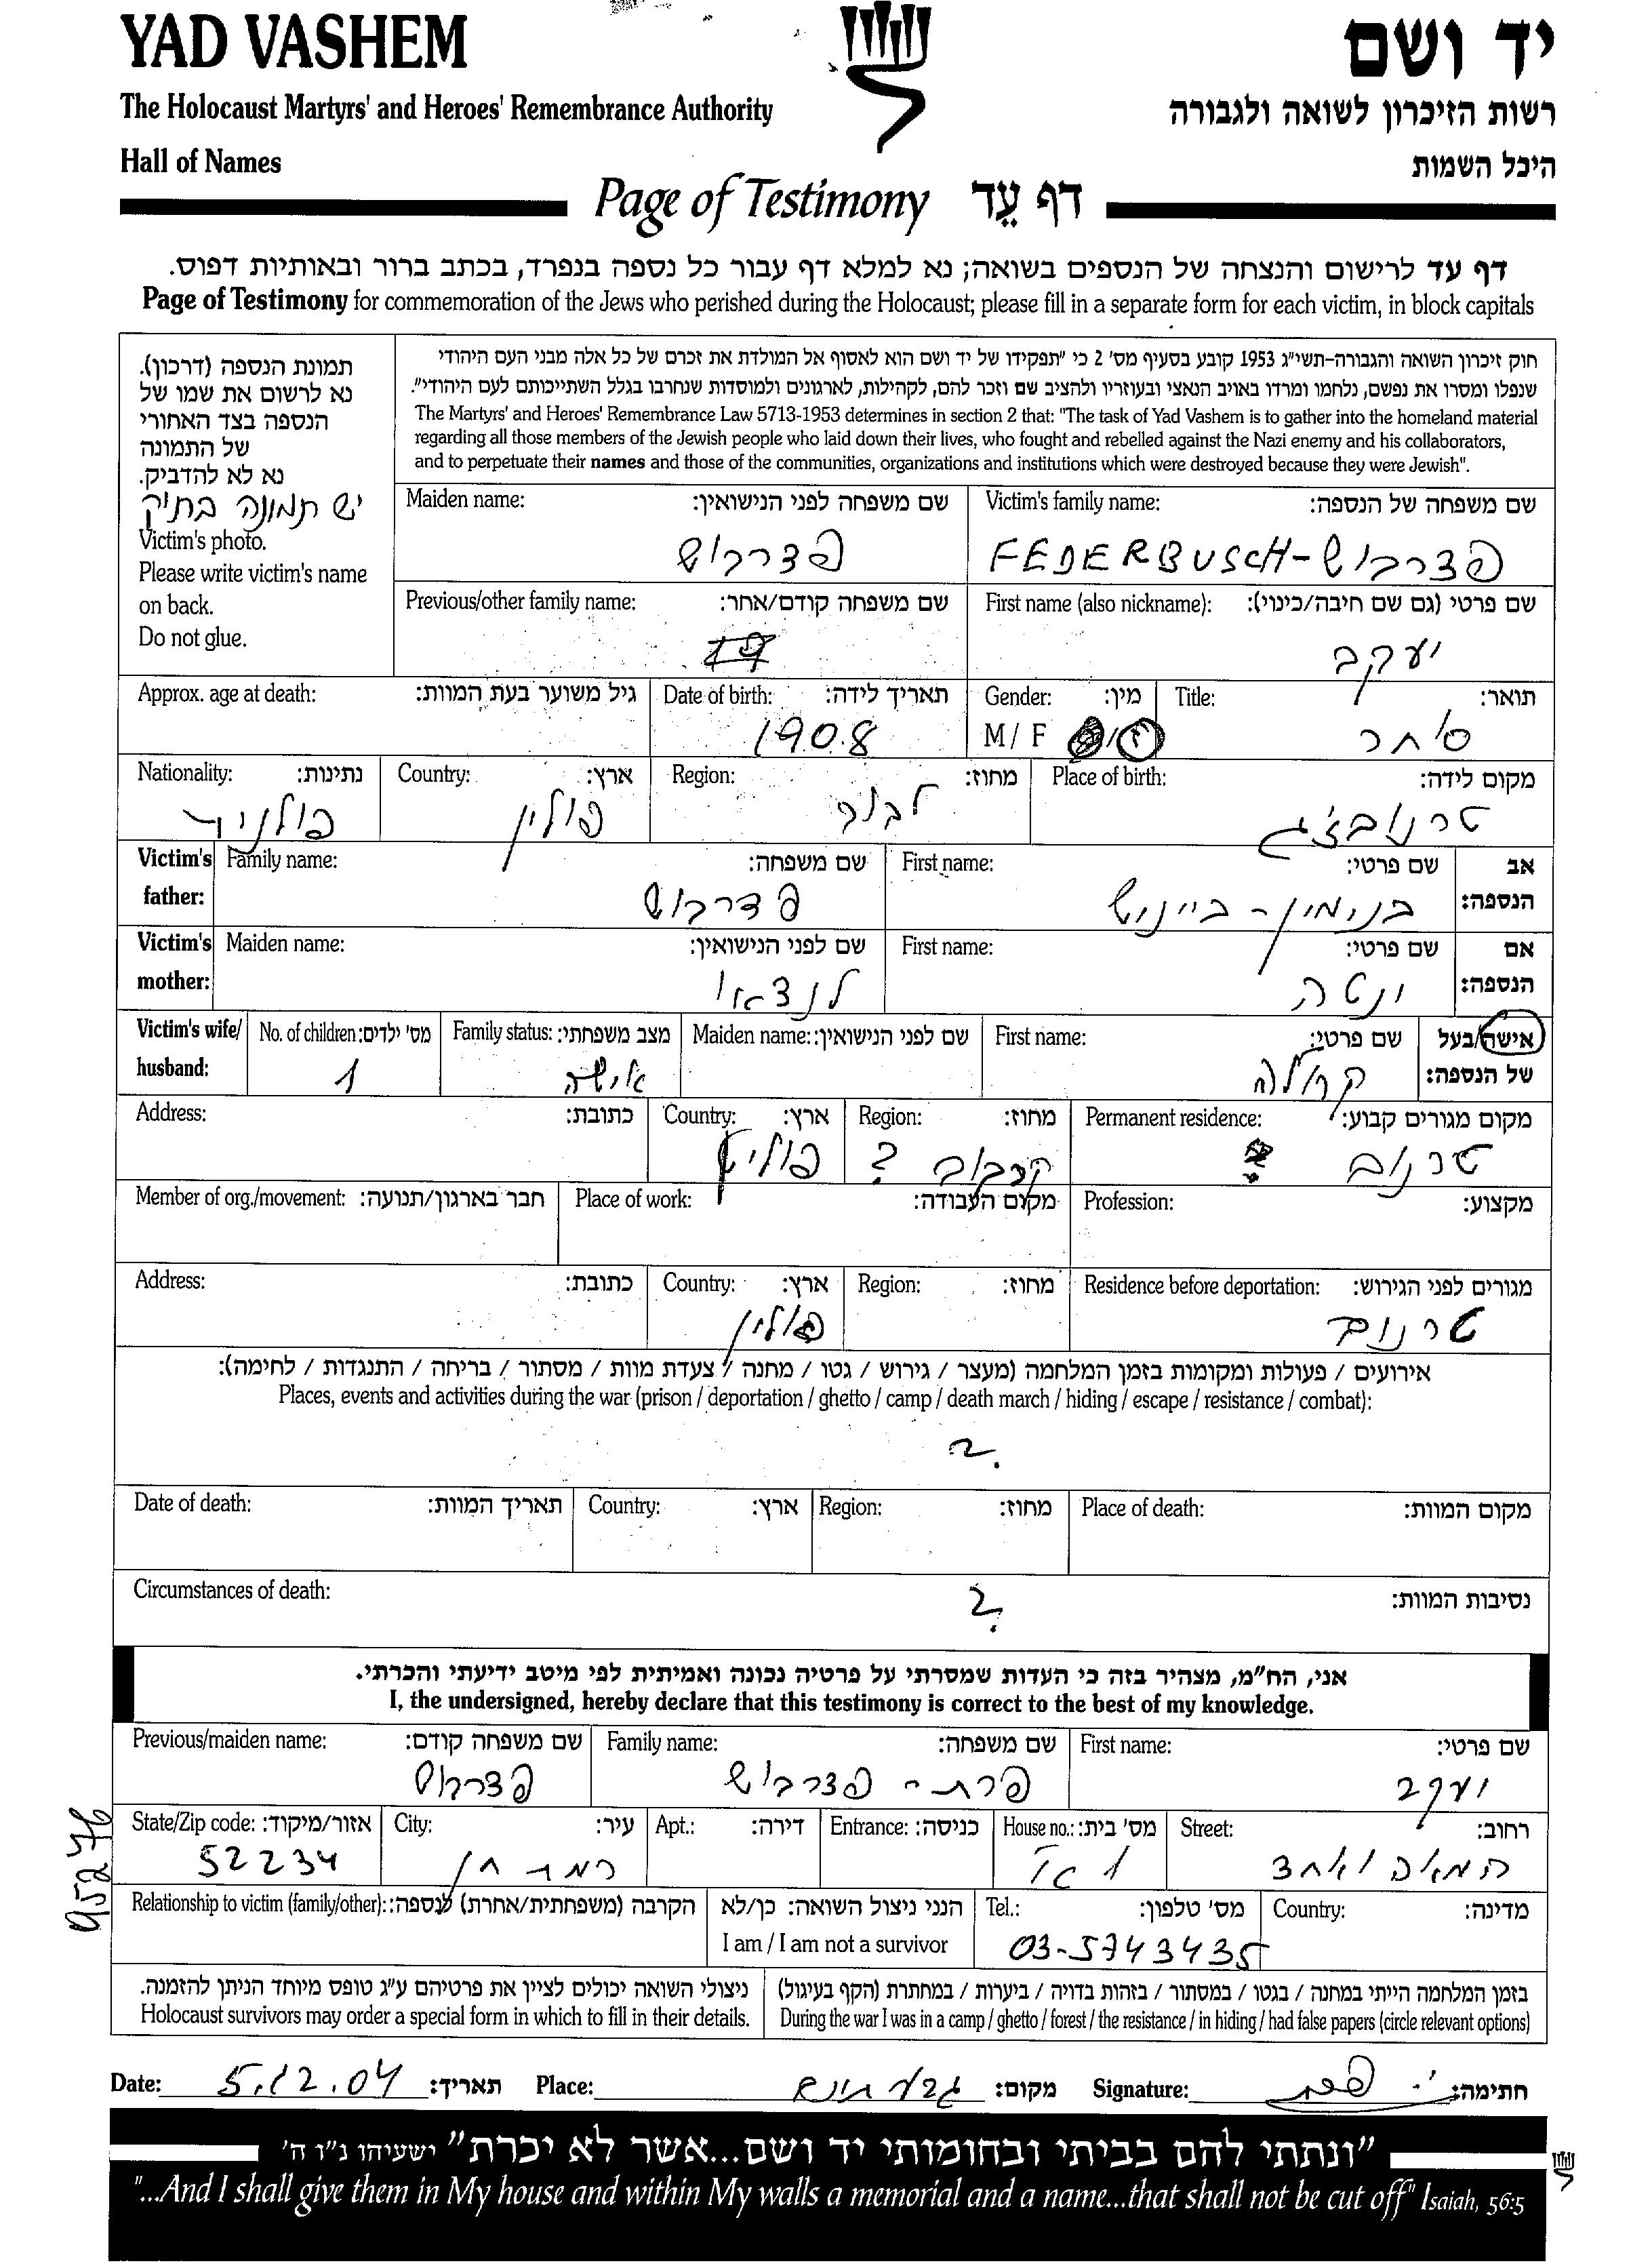 YAD VASHEM
יד ושם
The Holocaust Martyrs' and Heroes' Remembrance Authority
רשות הזיכרון לשואה ולגבורה
Hall of Names
היכל השמות
Page of Testimony דף עֵד
דף עד לרישום והנצחה של הנספים בשואה; נא למלא דף עבור כל נספה בנפרד, בכתב ברור ובאותיות דפוס.
Page of Testimony for commemoration of the Jews who perished during the Holocaust; please fill in a separate form for each victim, in block capitals
תמונת הנספה (דרכון).
נא לרשום את שמו של
הנספה בצד האחורי
של התמונה
נא לא להדביק.
יש תמונה בתיק
Victim's photo.
Please write victim's name
on back.
Do not glue.
חוק זיכרון השואה והגבורה-תשי"ג 1953 קובע בסעיף מס' 2 כי "תפקידו של יד ושם הוא לאסוף אל המולדת את זכרם של כל אלה מבני העם היהודי
שנפלו ומסרו את נפשם, נלחמו ומרדו באויב הנאצי ובעוזריו ולהציב שם וזכר להם, לקהילות, לארגונים ולמוסדות שנחרבו בגלל השתייכותם לעם היהודי".
The Martyrs' and Heroes' Remembrance Law 5713-1953 determines in section 2 that: "The task of Yad Vashem is to gather into the homeland material
regarding all those members of the Jewish people who laid down their lives, who fought and rebelled against the Nazi enemy and his collaborators,
and to perpetuate their names and those of the communities, organizations and institutions which were destroyed because they were Jewish".
שם משפחה של הנספה: Victim's family name:
פדרבוש-FEDERBUSCH
שם משפחה לפני הנישואין: Maiden name:
פדרבוש
שם פרטי (גם שם חיבה/כינוי): First name (also nickname):
יעקב
שם משפחה קודם/אחר: Previous/other family name:
תואר: Title:
סוחר
מין: Gender:
ז/ M / F
תאריך לידה: Date of birth:
1908
גיל משוער בעת המוות: Approx. age at death:
מקום לידה: Place of birth:
טרנובז'ג
מחוז: Region:
לבוב
ארץ: Country:
פולין
נתינות: Nationality:
פולנית
אב הנספה: Victim's father:
שם פרטי: First name:
בנימין-ביינוש
שם משפחה: Family name:
פדרבוש
אם הנספה: Victim's mother:
שם פרטי: First name:
ונטה
שם לפני הנישואין: Maiden name:
לנדאו
אישה/בעל של הנספה: Victim's wife/ husband:
שם פרטי: First name:
קרולה
שם לפני הנישואין: Maiden name:
מצב משפחתי: Family status:
אישה
מס' ילדים: No. of children:
1
מקום מגורים קבוע: Permanent residence:
טרנוב
מחוז: Region:
קרקוב ?
ארץ: Country:
פולין
כתובת: Address:
מקצוע: Profession:
מקום העבודה: Place of work:
חבר בארגון/תנועה: Member of org./movement:
מגורים לפני הגירוש: Residence before deportation:
טרנוב
מחוז: Region:
ארץ: Country:
פולין
כתובת: Address:
אירועים / פעולות ומקומות בזמן המלחמה (מעצר / גירוש / גטו / מחנה / צעדת מוות / מסתור / בריחה / התנגדות / לחימה):
Places, events and activities during the war (prison / deportation / ghetto / camp / death march / hiding / escape / resistance / combat):
?
מקום המוות: Place of death:
מחוז: Region:
ארץ: Country:
תאריך המוות: Date of death:
נסיבות המוות: Circumstances of death:
?
אני, הח"מ, מצהיר בזה כי העדות שמסרתי על פרטיה נכונה ואמיתית לפי מיטב ידיעתי והכרתי.
I, the undersigned, hereby declare that this testimony is correct to the best of my knowledge.
שם פרטי: First name:
יעקב
שם משפחה: Family name:
פרת - פדרבוש
שם משפחה קודם: Previous/maiden name:
פדרבוש
רחוב: Street:
המאה ואחד
מס' בית: House no.:
כניסה: Entrance:
דירה: Apt.:
עיר: City:
רמת חן
אזור/מיקוד: State/Zip code:
52234
מדינה: Country:
מס' טלפון: Tel.:
03-5743435
הנני ניצול השואה: כן/לא
I am / I am not a survivor
הקרבה (משפחתית/אחרת) לנספה: Relationship to victim (family/other):
בזמן המלחמה הייתי במחנה / בגטו / במסתור / בזהות בדויה / ביערות / במחתרת (הקף בעיגול)
During the war I was in a camp / ghetto / forest / the resistance / in hiding / had false papers (circle relevant options)
ניצולי השואה יכולים לציין את פרטיהם ע"ג טופס מיוחד הניתן להזמנה.
Holocaust survivors may order a special form in which to fill in their details.
חתימה: Signature:
מקום: Place:
תאריך: 5.12.04 Date:
"ונתתי להם בביתי ובחומותי יד ושם...אשר לא יכרת" ישעיהו נ"ו ה'
"...And I shall give them in My house and within My walls a memorial and a name...that shall not be cut off" Isaiah, 56:5